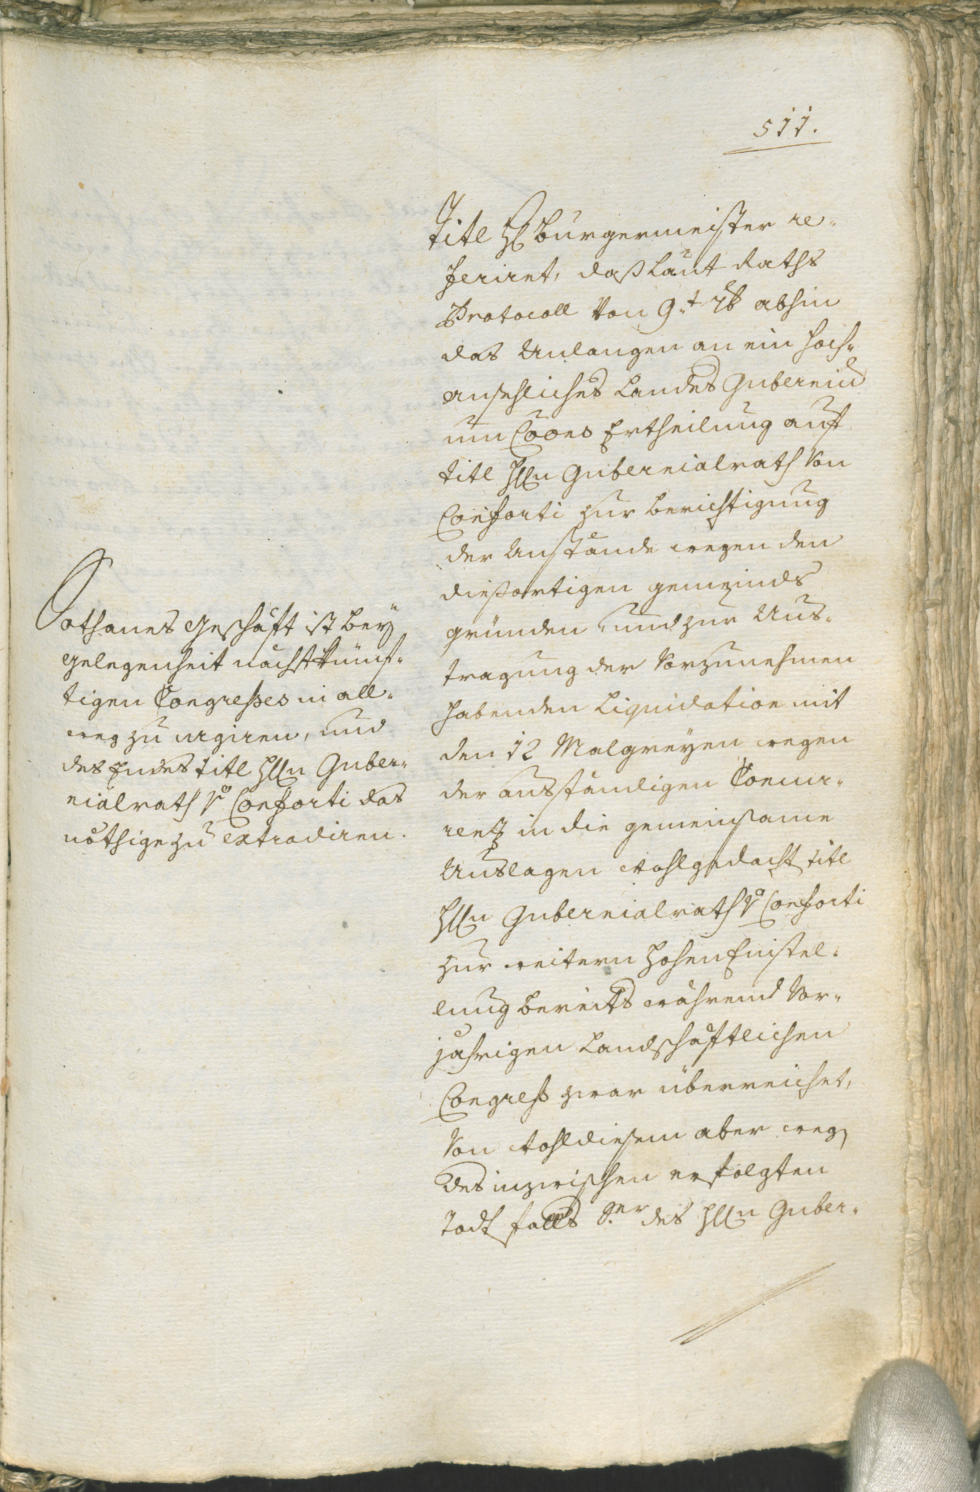 511.
Titl H Burgermeister re-
ferirt, daß laut Raths
Protocoll von 9.t 7b abhin
das Anlangen an ein hoch-
ansehliches Landes Gubernium
um Coões Ertheilung auf
titl H̃n Gubernialrath von
Conforti zur berichtigung
der Anstände wegen den
dießortigen gemeinds
gründen, und zur Aus-
tragung der Vorzunehmen
habenden Liquidation mit
den 12 Malgreyen wegen
der ausständigen Concur-
renz in die gemeinsame
Auslagen wohlgedacht titl
H̃n Gubernialrath v Conforti
zur weitern hohen Einstel-
lung bereits während Vor-
jährigen Landschaftlichen
Congreß zwar überreichet,
Von wohldiesem aber weg
des inzwischen erfolgten
Todtfalls des H̃n Guber-
Sothanes Geschäft ist bey
gelegenheit nächstkünf-
tigen Congreßes in all-
weg zu urgiren, und
des Endes titl H̃n Guber-
nialrath v Conforti das
nöthige zu extradiren.